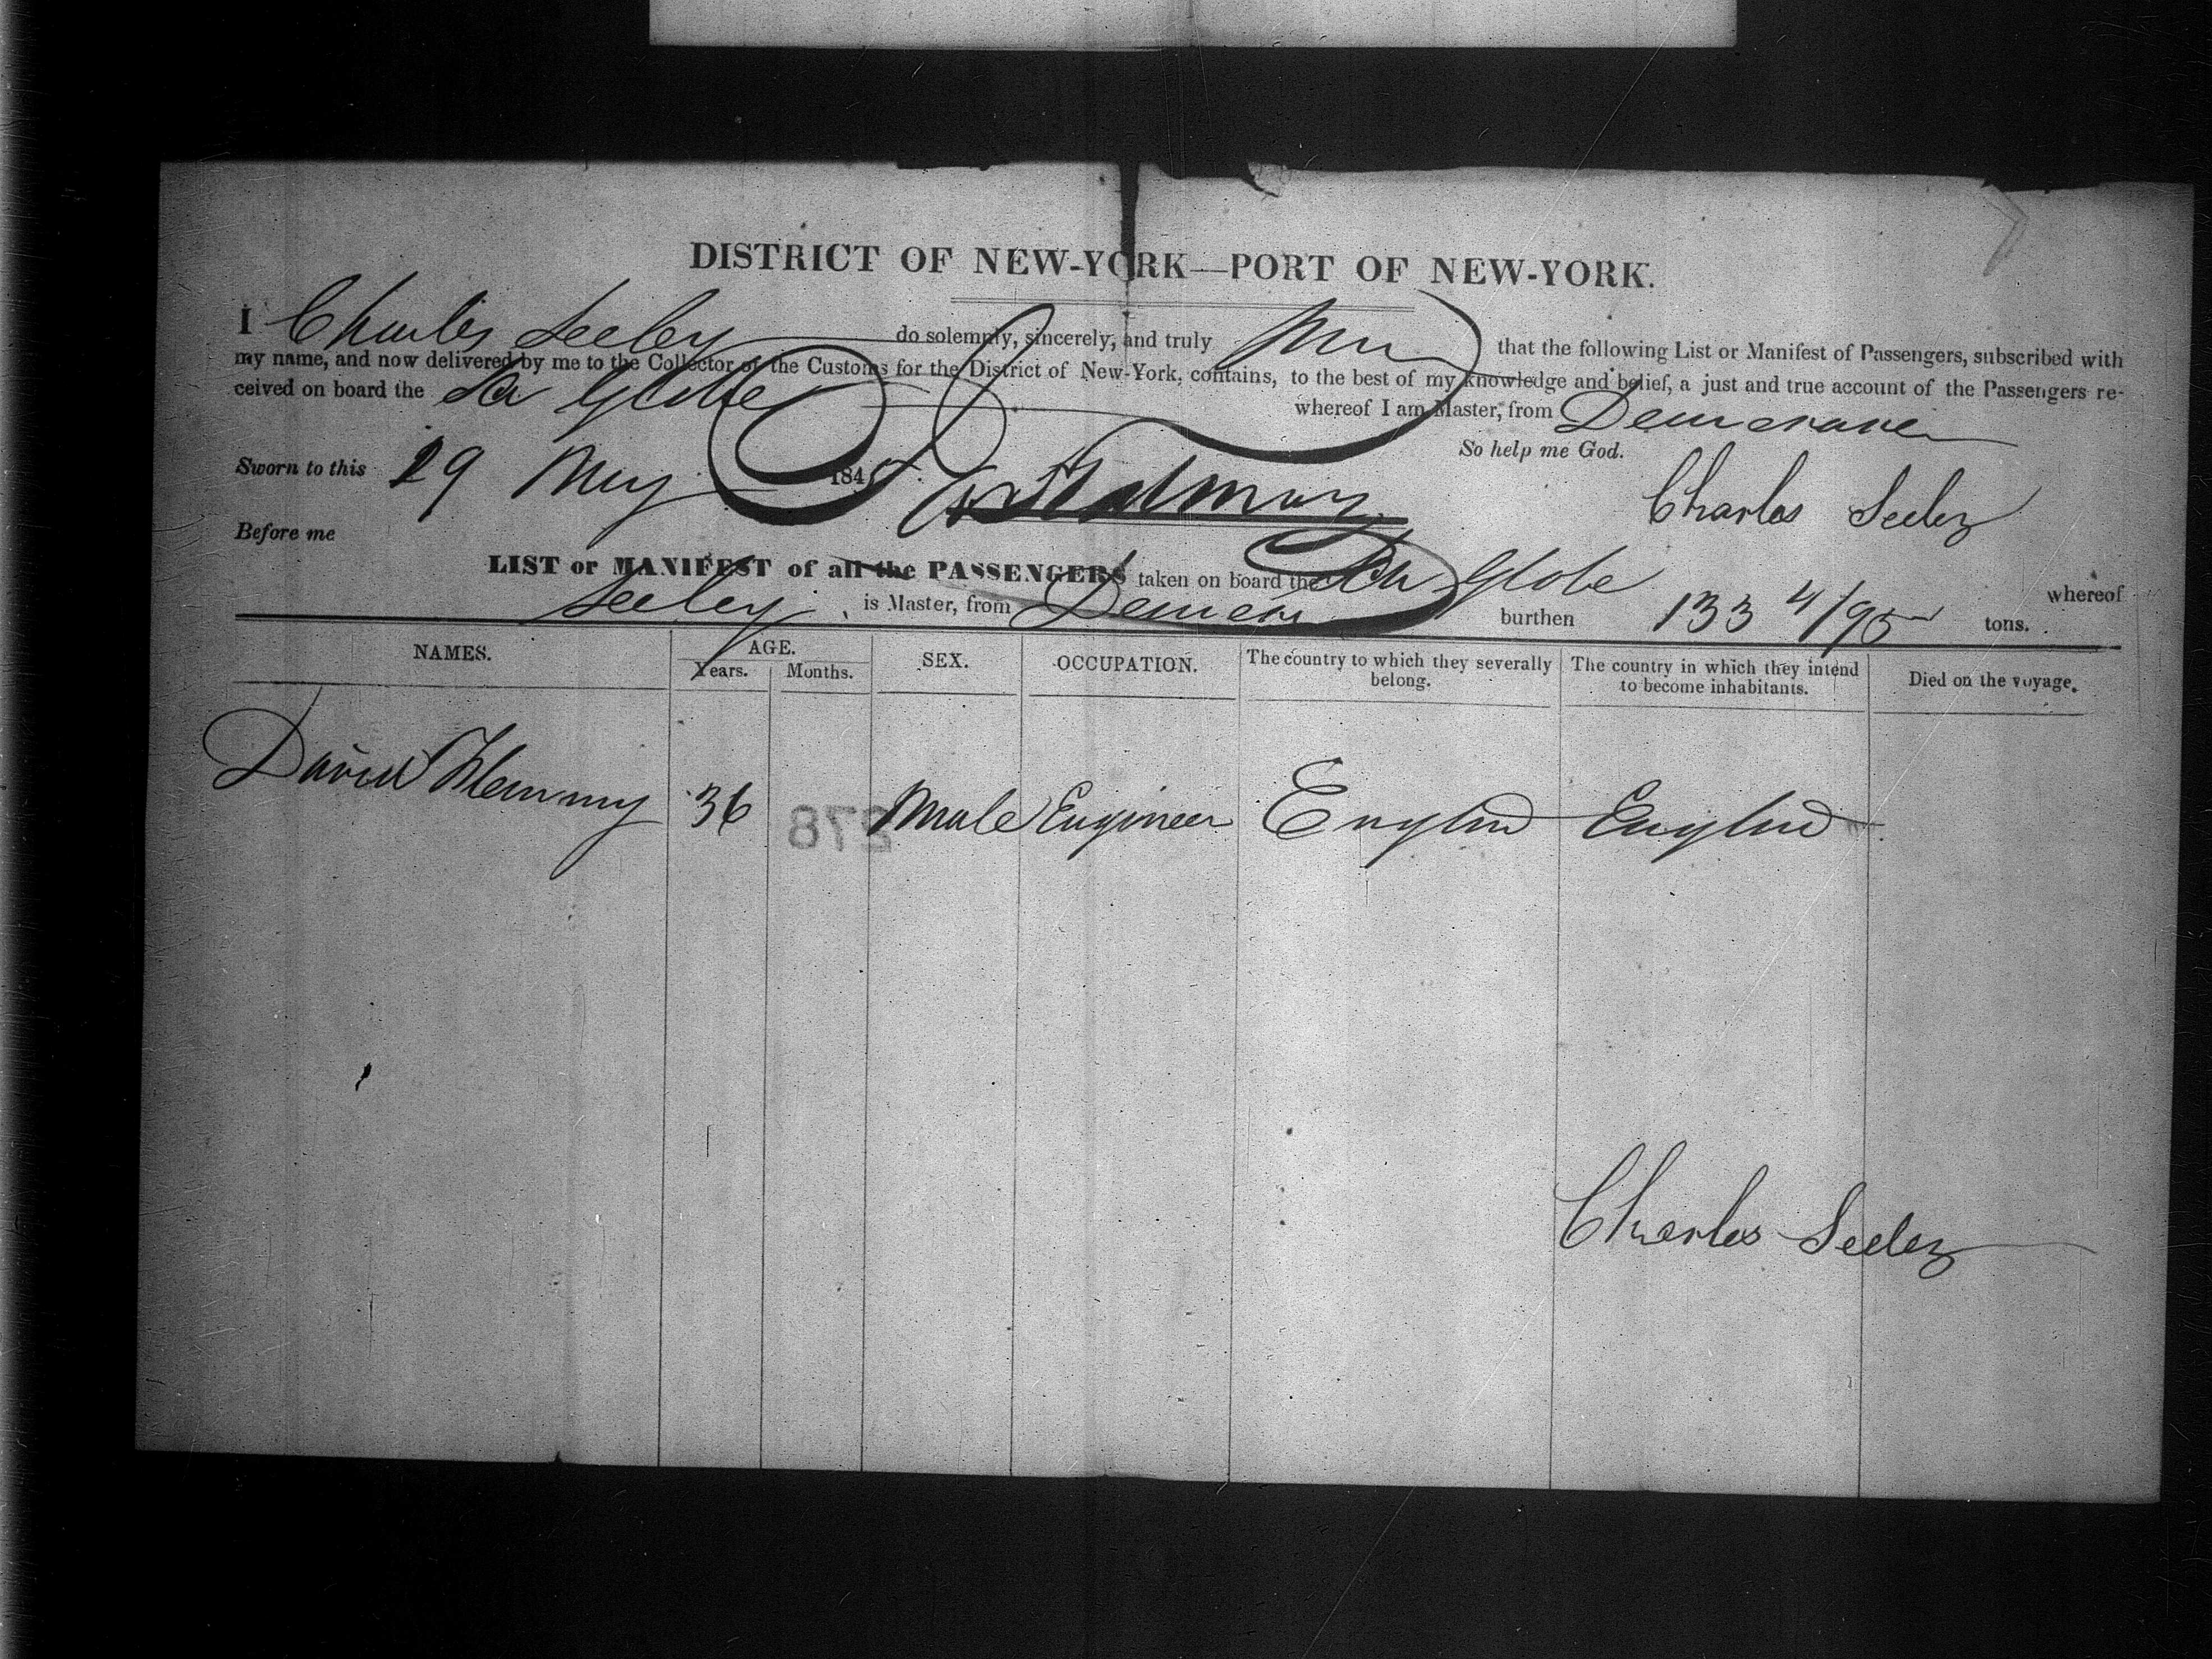 DISTRICT OF NEW-YORK—PORT OF NEW-YORK.
I Charles Seeley do solemnly, sincerely, and truly that the following List or Manifest of Passengers, subscribed with
my name, and now delivered by me to the Collector of the Customs for the District of New-York, contains, to the best of my knowledge and belief, a just and true account of the Passengers re-
ceived on board the Globe whereof I am Master, from
So help me God.
Sworn to this 29 May 1845. Charles Seeley
Before me
LIST or MANIFEST of all the PASSENGERS taken on board the Globe whereof
Seeley is Master, from burthen 133 4/95 tons.
NAMES. AGE. Years. Months. SEX. OCCUPATION. The country to which they severally belong. The country in which they intend to become inhabitants. Died on the voyage.
David 36 Male Engineer England England
278
Charles Seeley